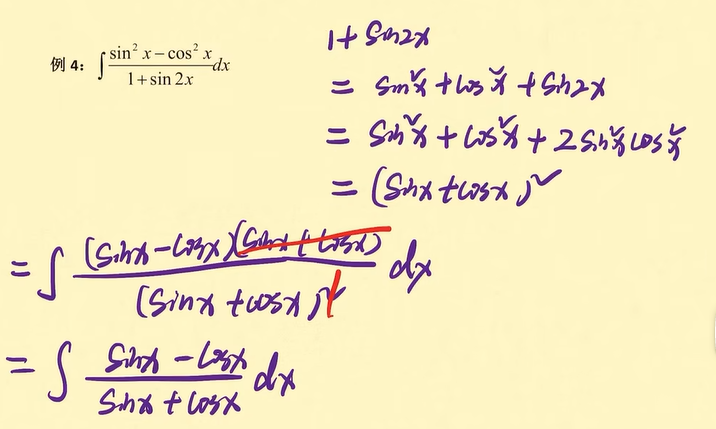 例 4: ∫ (sin² x − cos² x)/(1 + sin 2x) dx
1 + sin2x
= sin²x + cos²x + sin2x
= sin²x + cos²x + 2sin²x cos²x
= (sinx + cosx)²
= ∫ (sinx − cosx)(sinx + cosx)/(sinx + cosx)² dx
= ∫ (sinx − cosx)/(sinx + cosx) dx